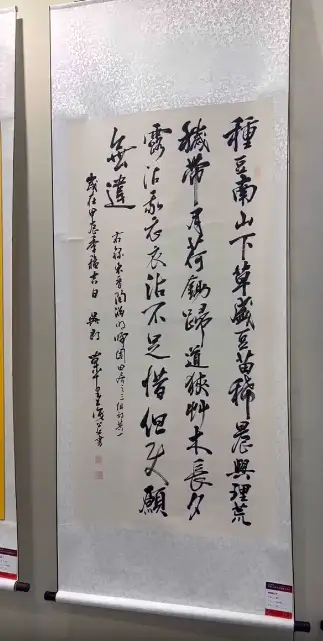 種豆南山下草盛豆苗稀晨興理荒
穢帶月荷鋤歸道狹艸木長夕
露沾我衣衣沾不足惜但使願
無違
右録東晉陶淵明歸園田
歲在甲辰季穐吉日